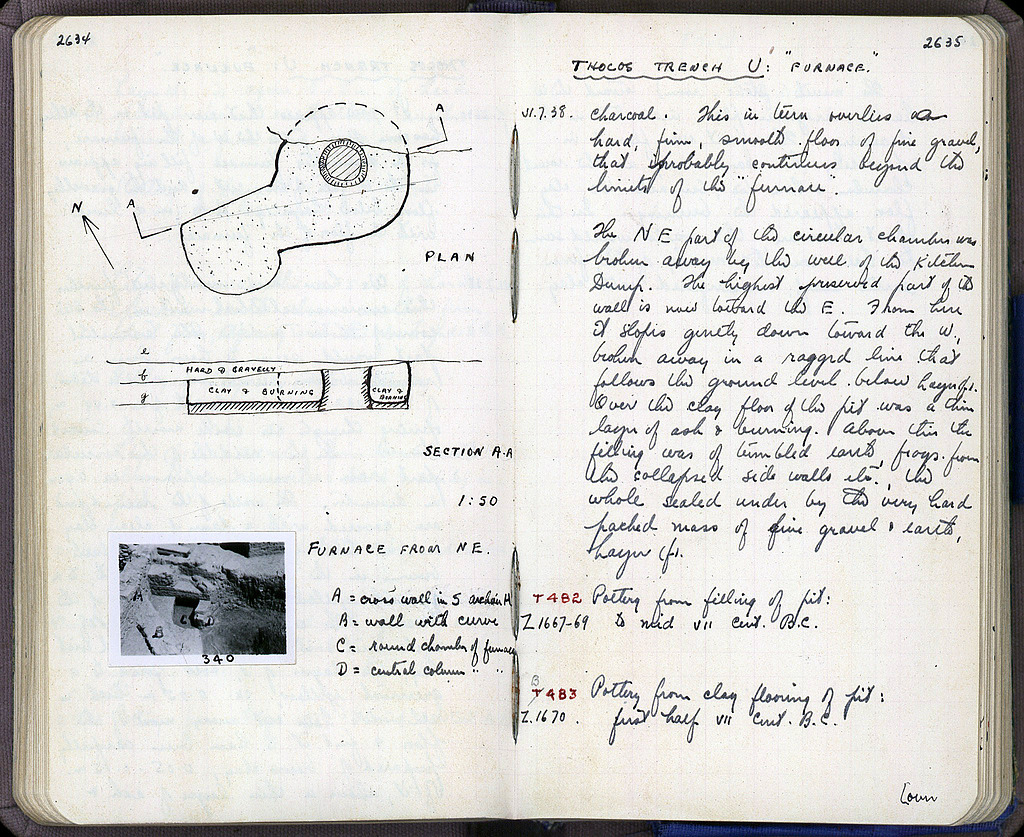 2634
A
N
A
PLAN
e
f
HARD & GRAVELLY
g
CLAY & BURNING
CLAY & BURNING
SECTION A-A
1:50
FURNACE FROM NE.
A = cross wall in S
B = wall with curve
C = round chamber of furnace
D = central column " "
A
B
C
D
340
2635
THOLOS TRENCH U: "FURNACE."
VI.7.38. charcoal. This in turn overlies a
hard, firm, smooth floor of fine gravel,
that probably continues beyond the
limits of the "furnace".
The NE part of the circular chamber was
broken away by the well of the Kitchen
Dump. The highest preserved part of the
wall is now toward the E. From here
it slopes gently down toward the W,
broken away in a ragged line that
follows the ground level below layer f.
Over the clay floor of the pit was a thin
layer of ash & burning. Above this the
filling was of tumbled earth, frags. from
the collapsed side walls etc., the
whole sealed under by the very hard
packed mass of fine gravel & earth,
Layer f.
T482 Pottery from filling of pit:
Z 1667-69 to mid VII cent. B.C.
B
T483 Pottery from clay flooring of pit:
Z.1670. first half VII cent. B.C.